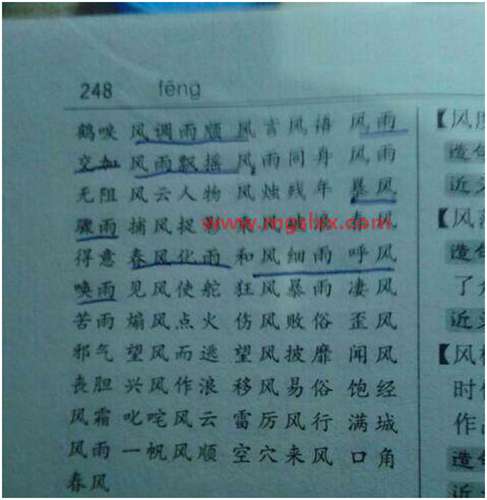 248 fēng
鹤唳 风调雨顺 风言风语 风雨
交加 风雨飘摇 风雨同舟 风雨
无阻 风云人物 风烛残年 暴风
骤雨 捕风捉 风
www.mgslxx.com
得意 春风化雨 和风细雨 呼风
唤雨 见风使舵 狂风暴雨 凄风
苦雨 煽风点火 伤风败俗 歪风
邪气 望风而逃 望风披靡 闻风
丧胆 兴风作浪 移风易俗 饱经
风霜 叱咤风云 雷厉风行 满城
风雨 一帆风顺 空穴来风 口角
春风
【风
造句
近义
【风
造句
了
近义
【风
时
作
造句
近义